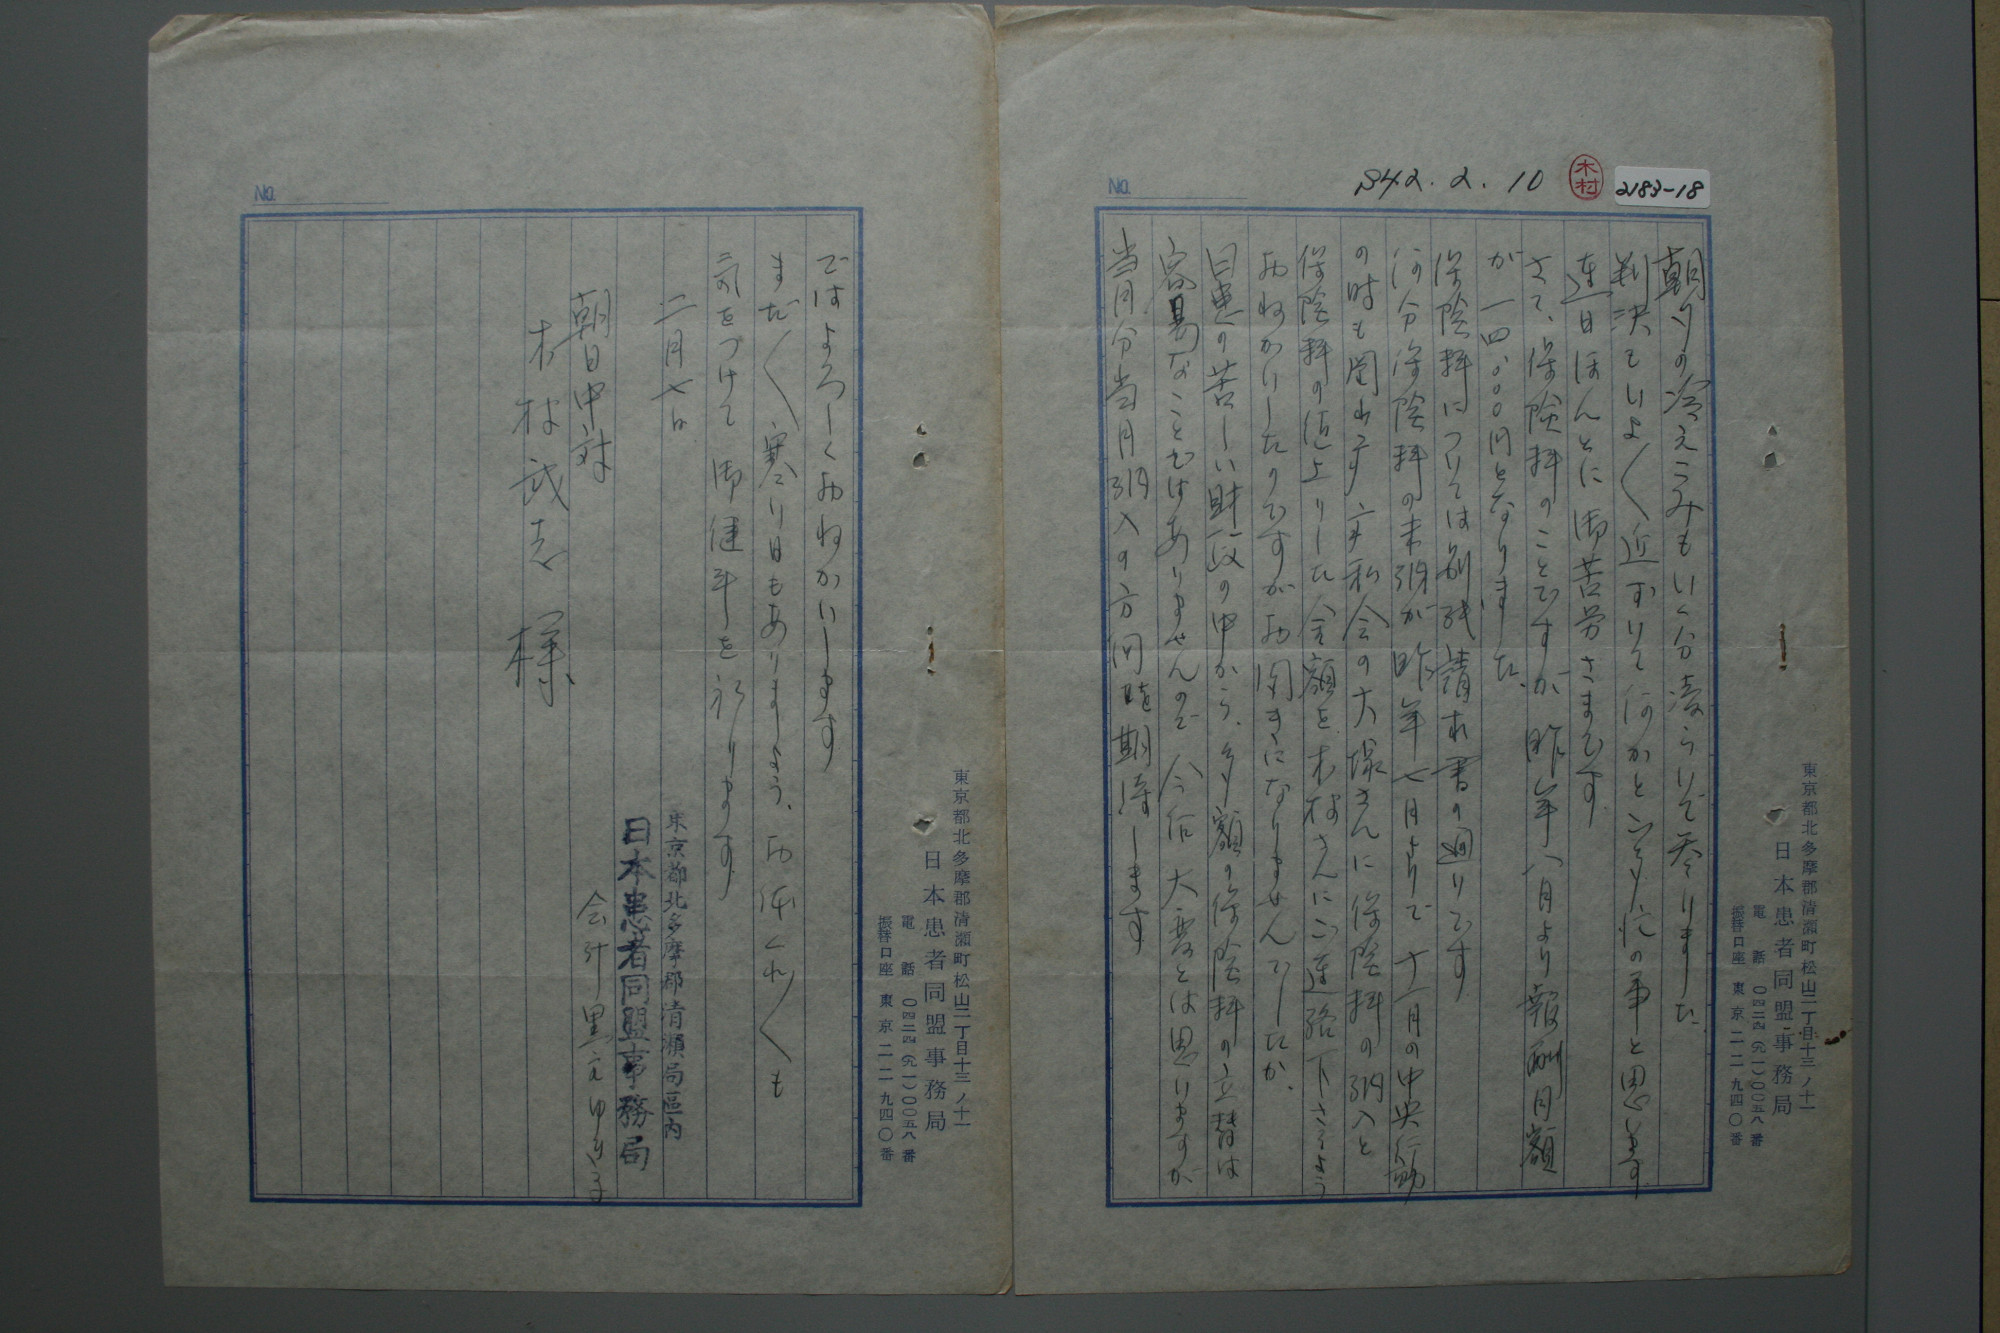 2183-18
木村
S42.2.10
No.
朝夕の冷えこみもいく分凌らいで参りました
判決もいよ〱近ずいて何かと御多忙の事と思います
連日ほんとに御苦労さまです
さて、保険料のことですが、昨年八月より報酬月額
が一四、〇〇〇円となりました、
保険料については別紙請求書の通りです
何分保険料の未納が昨年七月よりで十一月の中央行動
の時も朝日中対会の大塚さんに保険料の納入と
保険料の値上りした金額を木村さんにご連絡下さるよう
おねがいしたのですがお聞きになりませんでしたか、
日患の苦しい財政の中から、多額の保険料の立替は
容易なことではありませんので今后大変とは思いますが
当月分当月納入の方向を期待します
東京都北多摩郡清瀬町松山二丁目十三ノ十一
日本患者同盟事務局
電話 〇四二四(九一)〇〇五八番
振替口座 東京 二一二九四〇番
No.
ではよろしくおねがいします
まだ〱寒い日もありましよう、お体くれ〲も
気をつけて御健斗を祈ります
二月七日
東京都北多摩郡清瀬局区内
日本患者同盟事務局
会計
朝日中対
木村武志 様
東京都北多摩郡清瀬町松山二丁目十三ノ十一
日本患者同盟事務局
電話 〇四二四(九一)〇〇五八番
振替口座 東京 二一二九四〇番